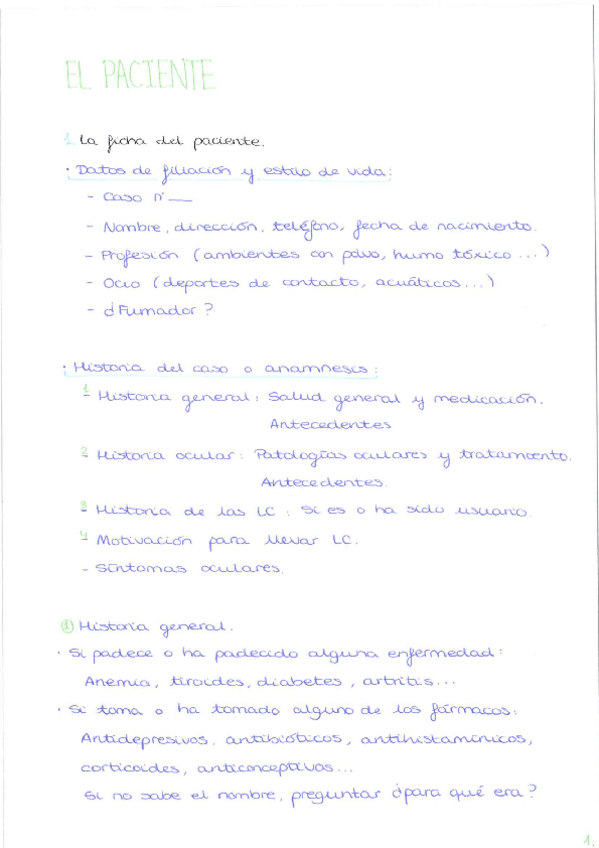 EL PACIENTE
1. La ficha del paciente.
· Datos de filiación y estilo de vida:
- Caso nº ___
- Nombre, dirección, teléfono, fecha de nacimiento.
- Profesión (ambientes con polvo, humo tóxico ...)
- Ocio (deportes de contacto, acuáticos...)
- ¿Fumador?
· Historia del caso o anamnesis:
1- Historia general: Salud general y medicación.
Antecedentes
2- Historia ocular: Patologías oculares y tratamiento.
Antecedentes.
3- Historia de las LC: Si es o ha sido usuario.
4- Motivación para llevar LC.
- Síntomas oculares.
① Historia general.
· Si padece o ha padecido alguna enfermedad:
Anemia, tiroides, diabetes, artritis...
· Si toma o ha tomado alguno de los fármacos:
Antidepresivos, antibióticos, antihistamínicos,
corticoides, anticonceptivos...
Si no sabe el nombre, preguntar ¿para qué era?
1.